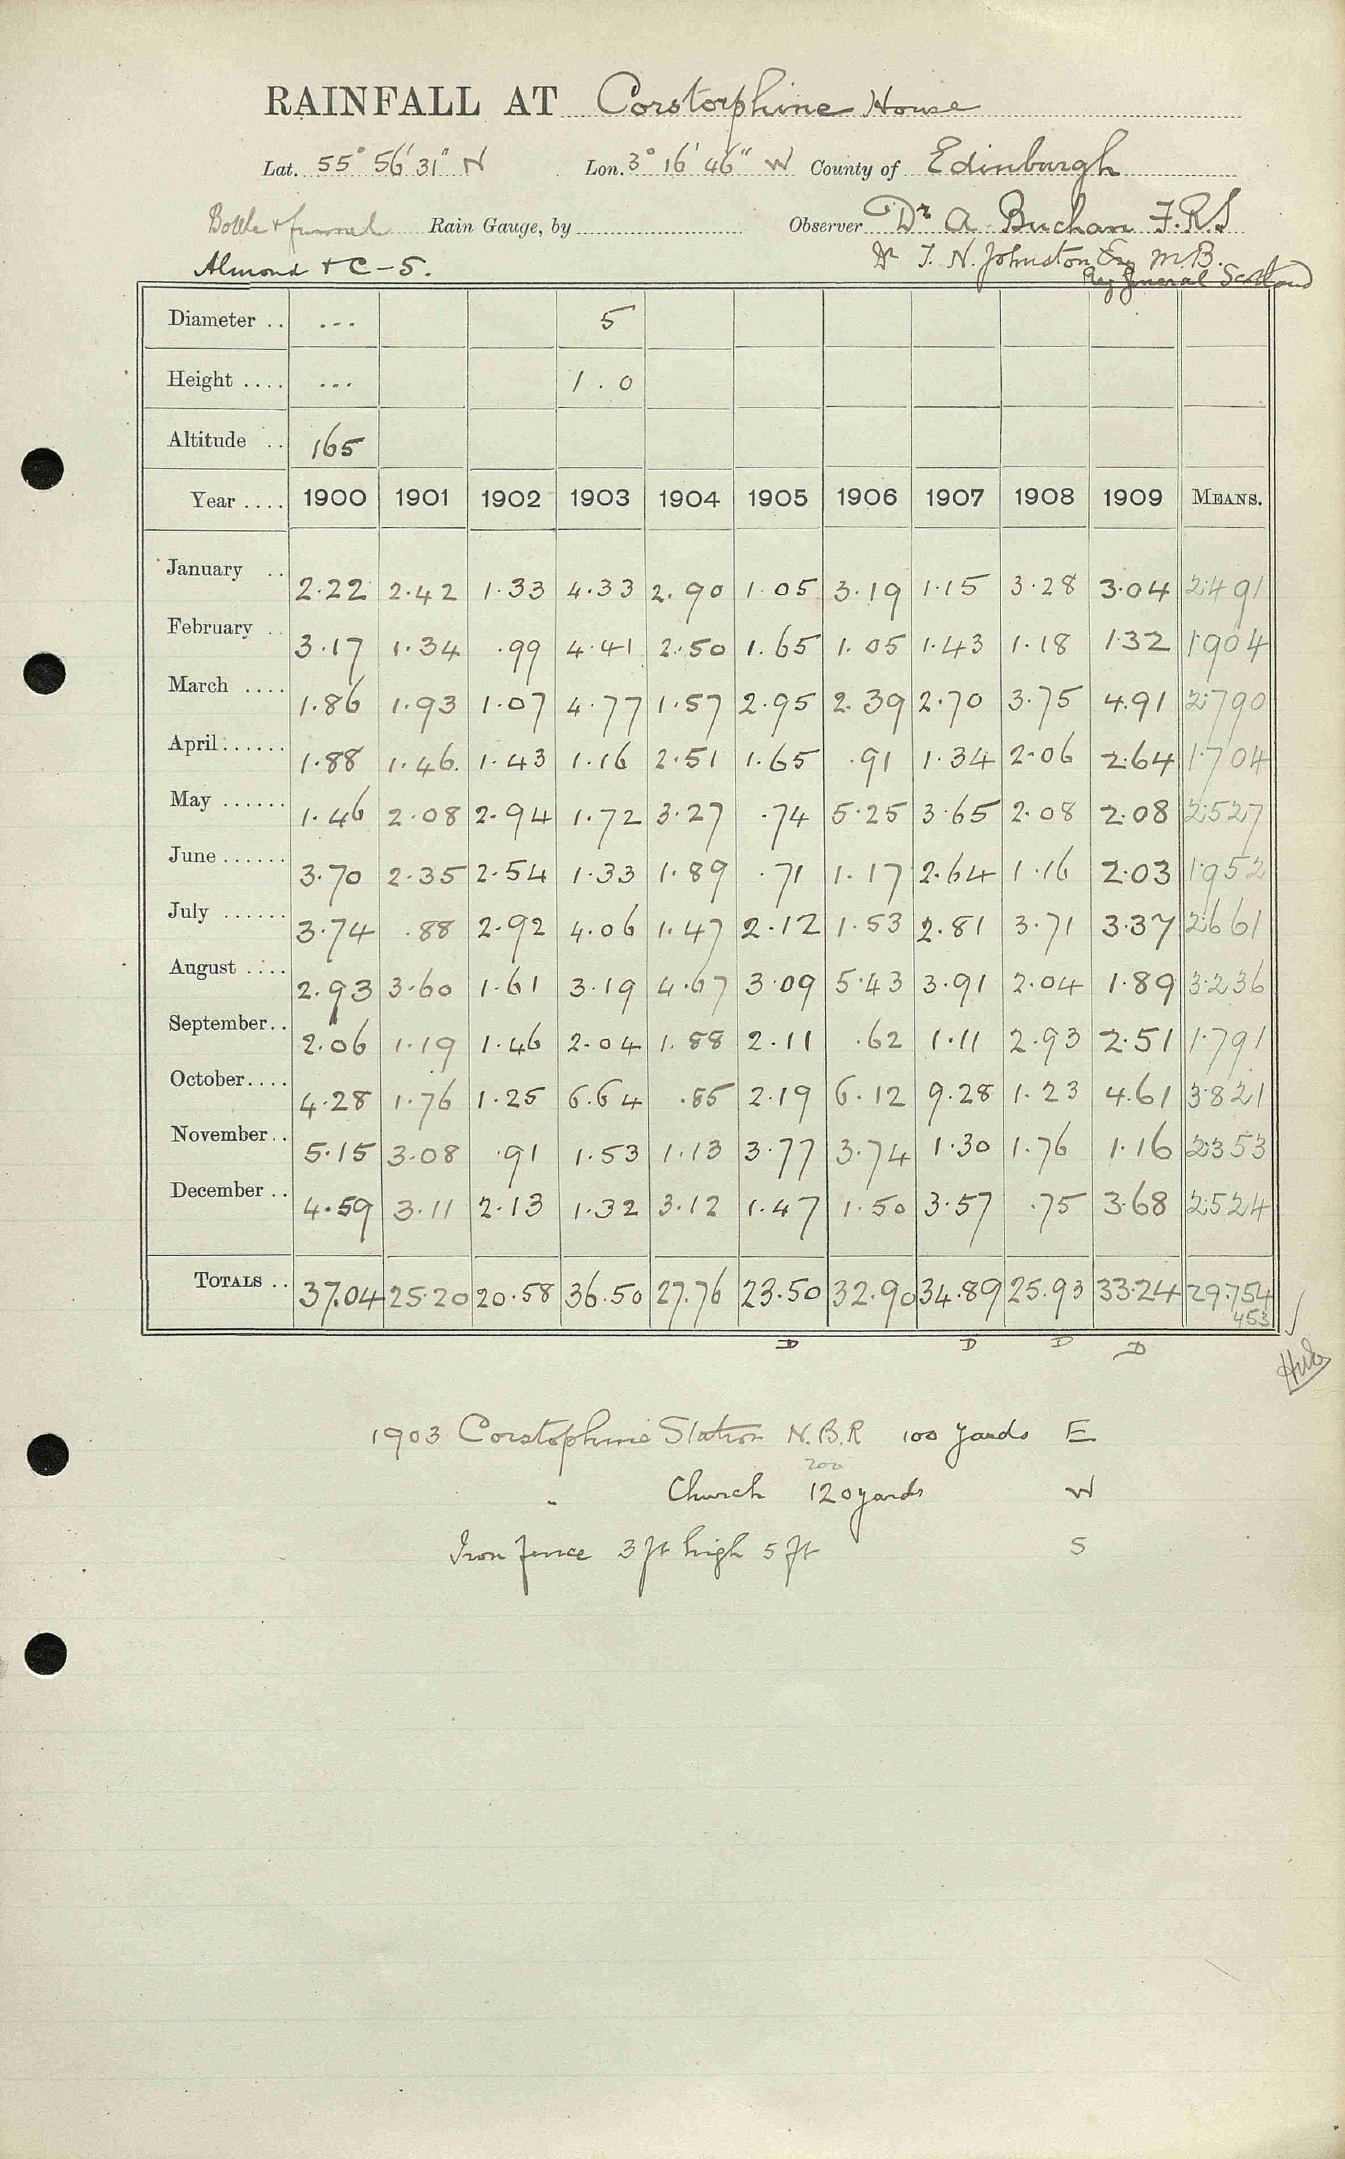 RAINFALL AT Corstorphine House
Lat. 55° 56' 31" N Lon. 3° 16' 46" W County of Edinburgh
Bottle & funnel Rain Gauge, by Observer Dr A. Buchan F.R.S
Almond & C-5. Dr T. N. Johnston Esq M.B.
Reg General Scotland
Diameter .. ... 5
Height .... ... 1.0
Altitude .. 165
Year .... 1900 1901 1902 1903 1904 1905 1906 1907 1908 1909 MEANS.
January .. 2.22 2.42 1.33 4.33 2.90 1.05 3.19 1.15 3.28 3.04 2.491
February .. 3.17 1.34 .99 4.41 2.50 1.65 1.05 1.43 1.18 1.32 1.904
March .... 1.86 1.93 1.07 4.77 1.57 2.95 2.39 2.70 3.75 4.91 2.790
April ...... 1.88 1.46 1.43 1.16 2.51 1.65 .91 1.34 2.06 2.64 1.704
May ...... 1.46 2.08 2.94 1.72 3.27 .74 5.25 3.65 2.08 2.08 2.527
June ...... 3.70 2.35 2.54 1.33 1.89 .71 1.17 2.64 1.16 2.03 1.952
July ...... 3.74 .88 2.92 4.06 1.47 2.12 1.53 2.81 3.71 3.37 2.661
August .... 2.93 3.60 1.61 3.19 4.67 3.09 5.43 3.91 2.04 1.89 3.236
September.. 2.06 1.19 1.46 2.04 1.88 2.11 .62 1.11 2.93 2.51 1.791
October.... 4.28 1.76 1.25 6.64 .85 2.19 6.12 9.28 1.23 4.61 3.821
November.. 5.15 3.08 .91 1.53 1.13 3.77 3.74 1.30 1.76 1.16 2.353
December .. 4.59 3.11 2.13 1.32 3.12 1.47 1.50 3.57 .75 3.68 2.524
TOTALS .. 37.04 25.20 20.58 36.50 27.76 23.50 32.90 34.89 25.93 33.24 29.754
453
D D D D
1903 Corstophine Station N.B.R 100 yards E
200
" Church 120 yards W
Iron fence 3 ft high 5 ft S